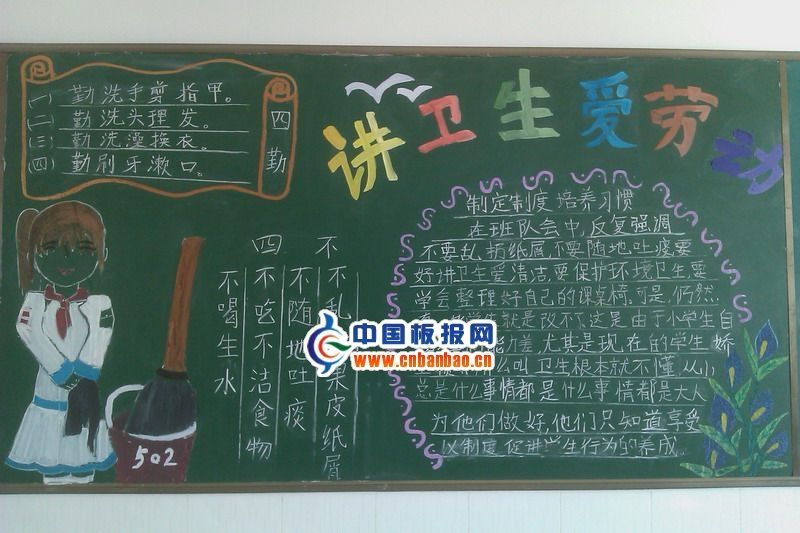 (一)勤洗手剪指甲。
(二)勤洗头理发。
(三)勤洗澡换衣。
(四)勤刷牙漱口。
四勤
讲卫生爱劳动
四不
不乱果皮纸屑
不随地吐痰
不吃不洁食物
不喝生水
502
制定制度培养习惯
在班队会中,反复强调
不要乱扔纸屑,不要随地吐痰要
好讲卫生爱清洁,要保护环境卫生要
学会整理好自己的课桌椅,可是,仍然
学生就是改不了,这是由于小学生自
能力差,尤其是现在的学生娇
叫卫生根本就不懂,从小
总是什么事情都是什么事情都是大人
为他们做好,他们只知道享受
以制度促进学生行为的养成
中国板报网
www.cnbanbao.cn